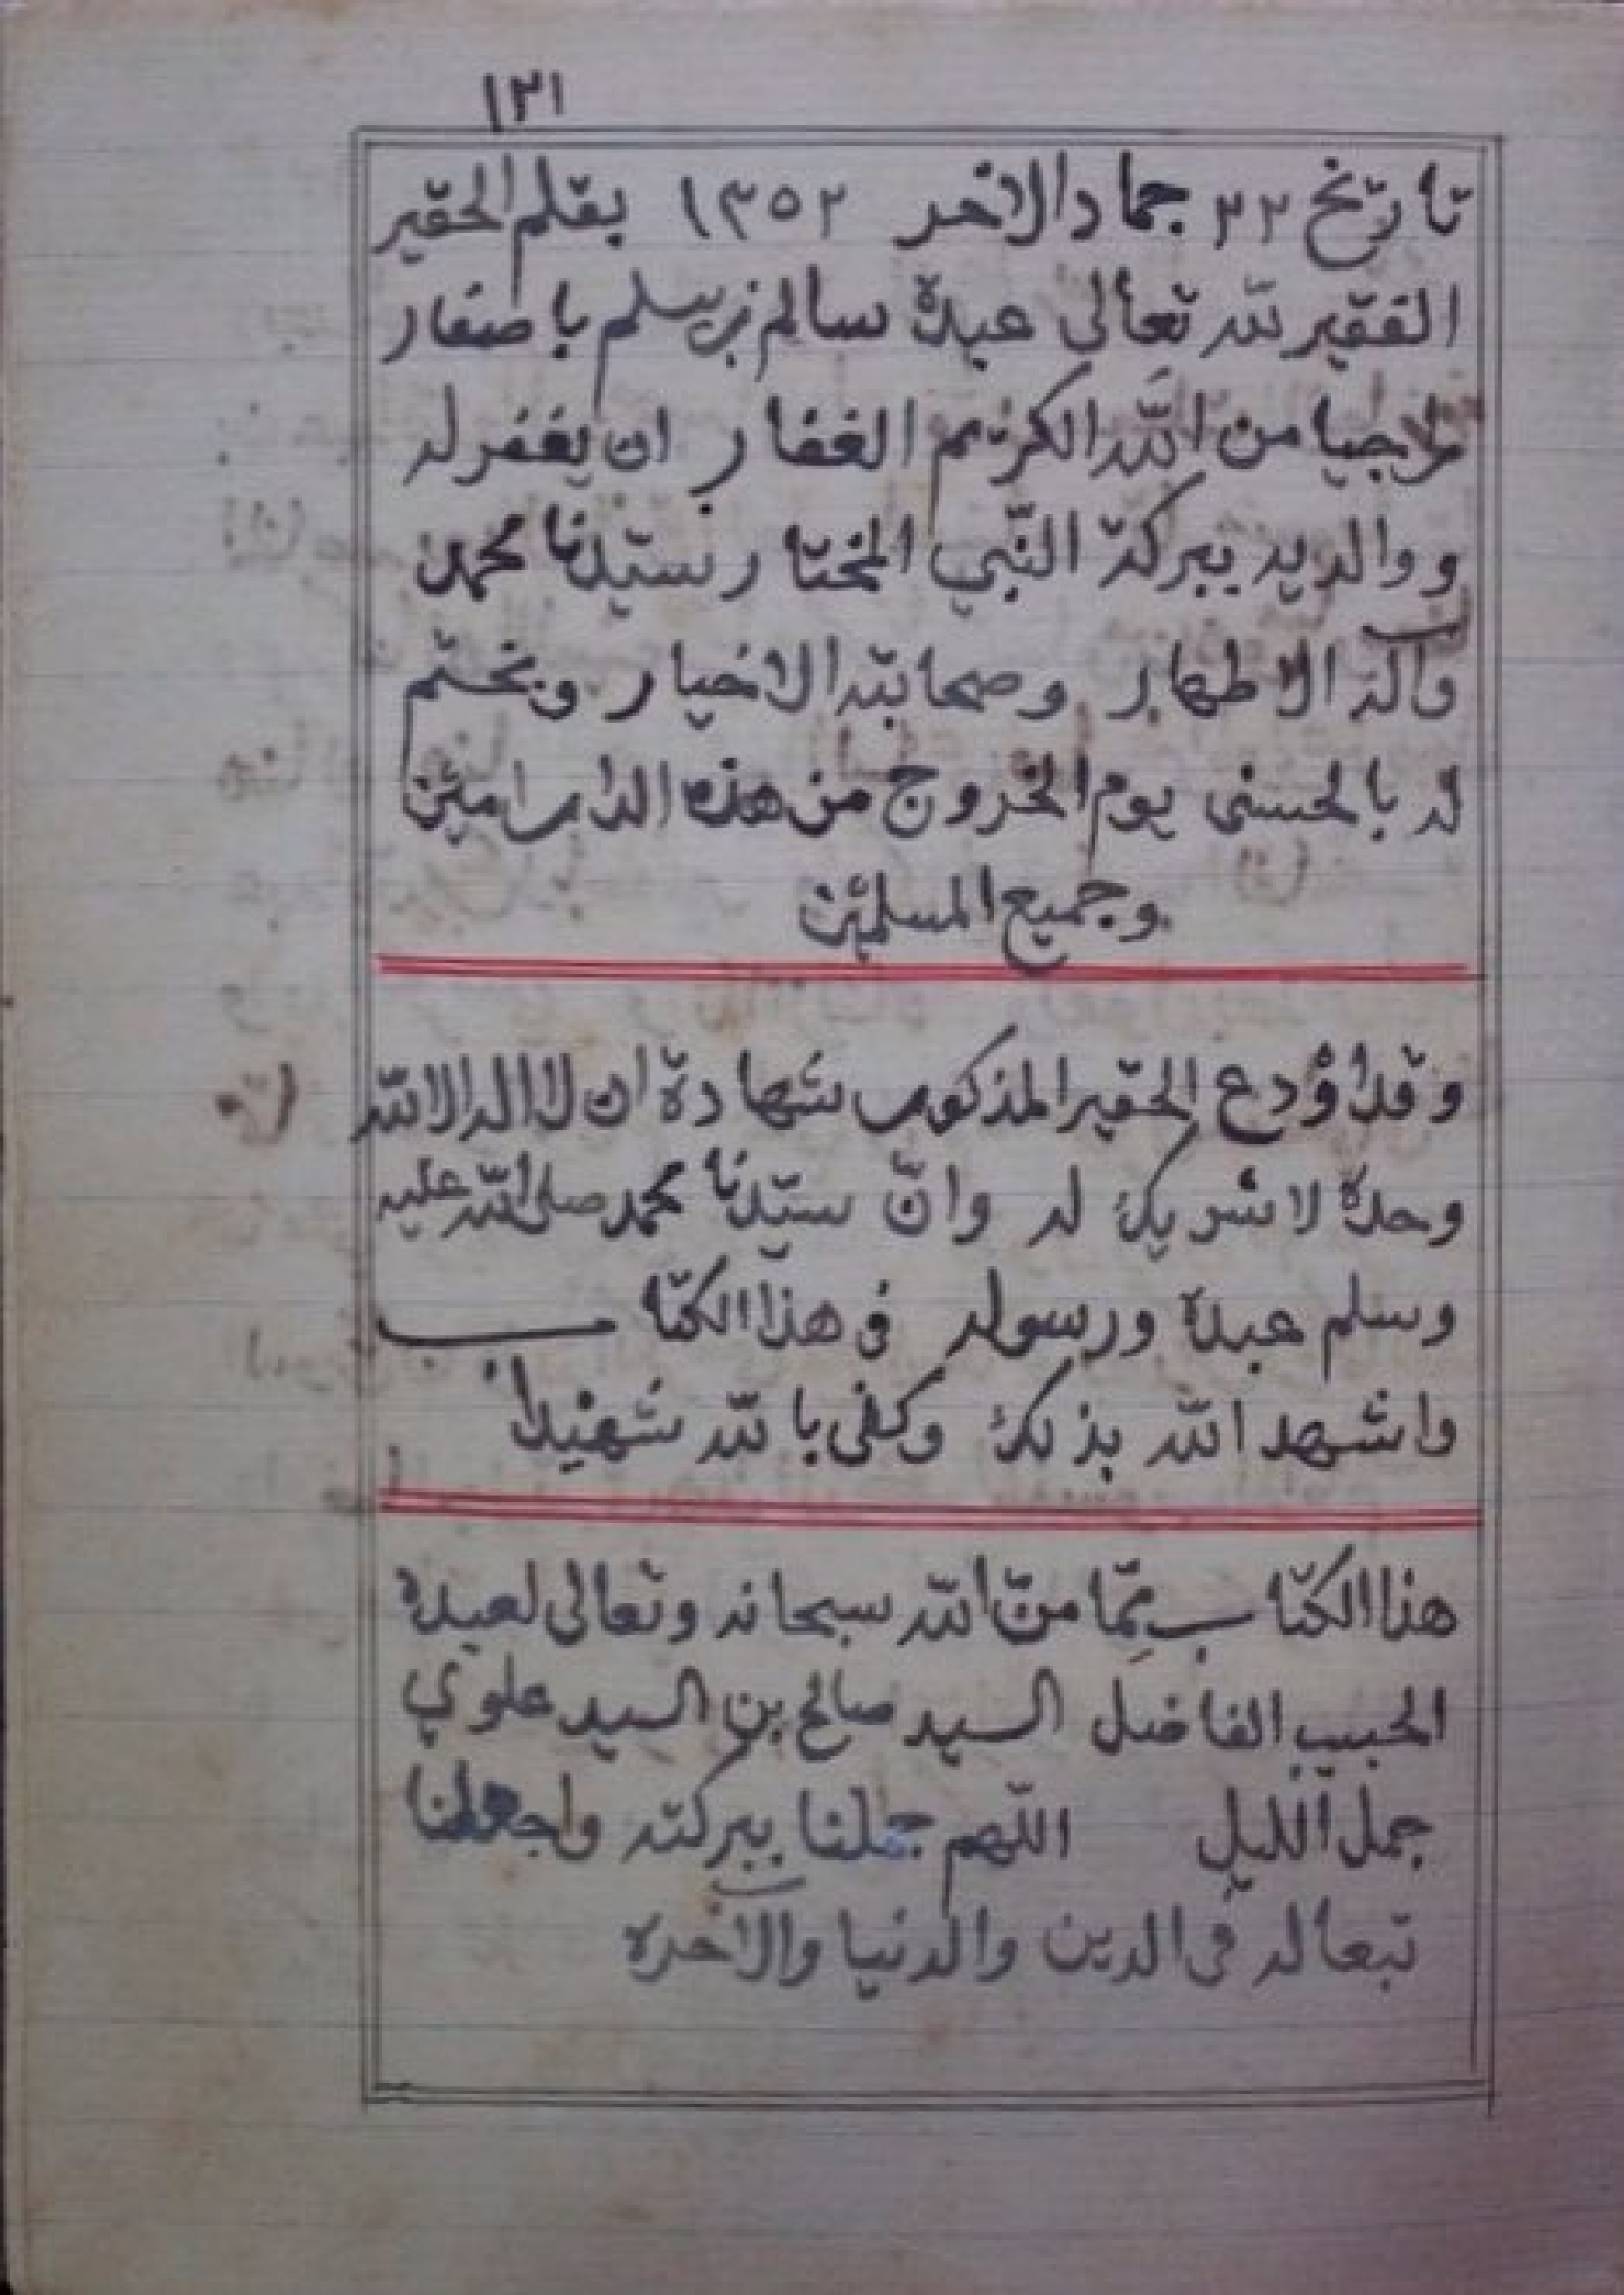 ١٢١
تاريخ ٢٢ جماد الاخر ١٣٥٢ بقلم الحقير
الفقير لله تعالى عبده سالم بن سلم باصفار
راجيا من الله الكريم الغفار ان يغفر له
ووالديه ببركة النّبي المختار سيّدنا محمد
واله الاطهار وصحابته الاخيار ويختم
له بالحسنى يوم الخروج من هذه الدار امين
وجميع المسلمين
وقد اؤدع الحقير المذكور شهادة ان لا اله الا الله
وحده لا شريك له وانّ سيّدنا محمد صلى الله عليه
وسلم عبده ورسوله في هذا الكتاب
واشهد الله بذلك وكفى بالله شهيدا
هذا الكتاب ممّا منّ الله سبحانه وتعالى لعبده
الحبيب الفاضل السيد صالح بن السيد علوي
جمل الليل اللهم جملنا ببركته واجعلنا
تبعا له في الدين والدنيا والاخره